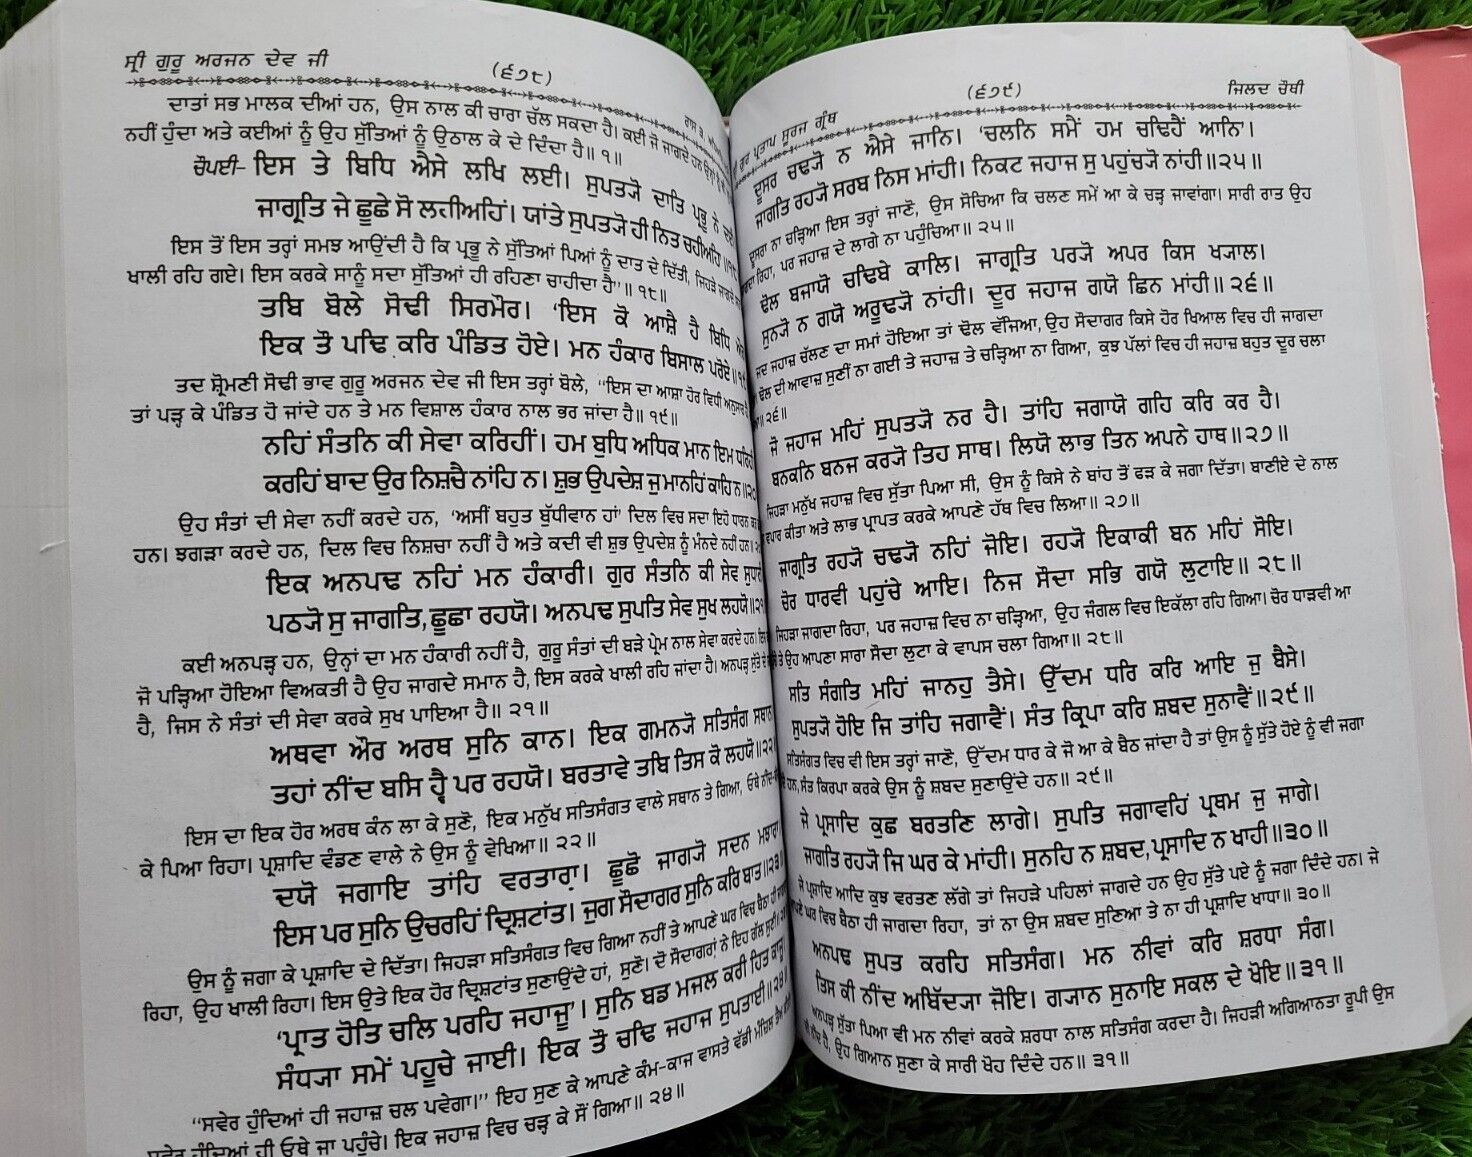 ਸ੍ਰੀ ਗੁਰੂ ਅਰਜਨ ਦੇਵ ਜੀ
(੬੭੮)
ਦਾਤਾਂ ਸਭ ਮਾਲਕ ਦੀਆਂ ਹਨ, ਉਸ ਨਾਲ ਕੀ ਚਾਰਾ ਚੱਲ ਸਕਦਾ ਹੈ। ਕਈ ਜੋ ਜਾਗਦੇ ਹਨ
ਨਹੀਂ ਹੁੰਦਾ ਅਤੇ ਕਈਆਂ ਨੂੰ ਉਹ ਸੁੱਤਿਆਂ ਨੂੰ ਉਠਾਲ ਕੇ ਦੇ ਦਿੰਦਾ ਹੈ॥ ੧॥
ਚੌਪਈ- ਇਸ ਤੇ ਬਿਧਿ ਐਸੇ ਲਖਿ ਲਈ। ਸੁਪਤ੍ਯੋ ਦਾਤਿ ਪ੍ਰਭੂ ਨੇ ਦਈ
ਜਾਗ੍ਰਤਿ ਜੇ ਛੂਛੇ ਸੋ ਲਹੀਅਹਿਂ। ਯਾਂਤੇ ਸੁਪਤ੍ਯੋ ਹੀ ਨਿਤ ਚਹੀਅਹਿ॥੧੮
ਇਸ ਤੋਂ ਇਸ ਤਰ੍ਹਾਂ ਸਮਝ ਆਉਂਦੀ ਹੈ ਕਿ ਪ੍ਰਭੂ ਨੇ ਸੁੱਤਿਆਂ ਪਿਆਂ ਨੂੰ ਦਾਤ ਦੇ ਦਿੱਤੀ, ਜਿਹੜੇ ਜਾਗਦੇ
ਖਾਲੀ ਰਹਿ ਗਏ। ਇਸ ਕਰਕੇ ਸਾਨੂੰ ਸਦਾ ਸੁੱਤਿਆਂ ਹੀ ਰਹਿਣਾ ਚਾਹੀਦਾ ਹੈ”॥ ੧੮॥
ਤਬਿ ਬੋਲੇ ਸੋਢੀ ਸਿਰਮੌਰ। ‘ਇਸ ਕੋ ਆਸ਼ੈ ਹੈ ਬਿਧਿ
ਇਕ ਤੌ ਪਢਿ ਕਰਿ ਪੰਡਿਤ ਹੋਏ। ਮਨ ਹੰਕਾਰ ਬਿਸਾਲ ਪਰੋਏ॥੧੯
ਤਦ ਸ਼੍ਰੋਮਣੀ ਸੋਢੀ ਭਾਵ ਗੁਰੂ ਅਰਜਨ ਦੇਵ ਜੀ ਇਸ ਤਰ੍ਹਾਂ ਬੋਲੇ, “ਇਸ ਦਾ ਆਸ਼ਾ ਹੋਰ ਵਿਧੀ ਅਨੁਸਾਰ ਹੈ
ਤਾਂ ਪੜ੍ਹ ਕੇ ਪੰਡਿਤ ਹੋ ਜਾਂਦੇ ਹਨ ਤੇ ਮਨ ਵਿਸ਼ਾਲ ਹੰਕਾਰ ਨਾਲ ਭਰ ਜਾਂਦਾ ਹੈ॥ ੧੯॥
ਨਹਿਂ ਸੰਤਨਿ ਕੀ ਸੇਵਾ ਕਰਿਹੀਂ। ਹਮ ਬੁਧਿ ਅਧਿਕ ਮਾਨ ਇਮ ਧਰਿਹੀਂ
ਕਰਹਿਂ ਬਾਦ ਉਰ ਨਿਸ਼ਚੈ ਨਾਂਹਿ ਨ। ਸ਼ੁਭ ਉਪਦੇਸ਼ ਜੁ ਮਾਨਹਿਂ ਕਾਹਿ ਨ॥੨੦
ਉਹ ਸੰਤਾਂ ਦੀ ਸੇਵਾ ਨਹੀਂ ਕਰਦੇ ਹਨ, ‘ਅਸੀਂ ਬਹੁਤ ਬੁੱਧੀਵਾਨ ਹਾਂ’ ਦਿਲ ਵਿਚ ਸਦਾ ਇਹੋ ਧਾਰਨ
ਹਨ। ਝਗੜਾ ਕਰਦੇ ਹਨ, ਦਿਲ ਵਿਚ ਨਿਸ਼ਚਾ ਨਹੀਂ ਹੈ ਅਤੇ ਕਦੀ ਵੀ ਸ਼ੁਭ ਉਪਦੇਸ਼ ਨੂੰ ਮੰਨਦੇ ਨਹੀਂ ਹਨ।
ਇਕ ਅਨਪਢ ਨਹਿਂ ਮਨ ਹੰਕਾਰੀ। ਗੁਰ ਸੰਤਨਿ ਕੀ ਸੇਵ ਸੁਧਾਰੀ
ਪਠ੍ਯੋ ਸੁ ਜਾਗਤਿ, ਛੂਛਾ ਰਹਯੋ। ਅਨਪਢ ਸੁਪਤਿ ਸੇਵ ਸੁਖ ਲਹਯੋ॥੨੧
ਕਈ ਅਨਪੜ੍ਹ ਹਨ, ਉਨ੍ਹਾਂ ਦਾ ਮਨ ਹੰਕਾਰੀ ਨਹੀਂ ਹੈ, ਗੁਰੂ ਸੰਤਾਂ ਦੀ ਬੜੇ ਪ੍ਰੇਮ ਨਾਲ ਸੇਵਾ ਕਰਦੇ ਹਨ।
ਜੋ ਪੜ੍ਹਿਆ ਹੋਇਆ ਵਿਅਕਤੀ ਹੈ ਉਹ ਜਾਗਦੇ ਸਮਾਨ ਹੈ, ਇਸ ਕਰਕੇ ਖਾਲੀ ਰਹਿ ਜਾਂਦਾ ਹੈ। ਅਨਪੜ੍ਹ ਸੁੱਤੇ
ਹੈ, ਜਿਸ ਨੇ ਸੰਤਾਂ ਦੀ ਸੇਵਾ ਕਰਕੇ ਸੁਖ ਪਾਇਆ ਹੈ॥ ੨੧॥
ਅਥਵਾ ਔਰ ਅਰਥ ਸੁਨਿ ਕਾਨ। ਇਕ ਗਮਨ੍ਯੋ ਸਤਿਸੰਗ ਸਥਾਨ
ਤਹਾਂ ਨੀਂਦ ਬਸਿ ਹ੍ਵੈ ਪਰ ਰਹਯੋ। ਬਰਤਾਵੇ ਤਬਿ ਤਿਸ ਕੋ ਲਹਯੋ॥੨੨
ਇਸ ਦਾ ਇਕ ਹੋਰ ਅਰਥ ਕੰਨ ਲਾ ਕੇ ਸੁਣੋ, ਇਕ ਮਨੁੱਖ ਸਤਿਸੰਗਤ ਵਾਲੇ ਸਥਾਨ ਤੇ ਗਿਆ, ਓਥੇ ਨੀਂਦ
ਕੇ ਪਿਆ ਰਿਹਾ। ਪ੍ਰਸ਼ਾਦਿ ਵੰਡਣ ਵਾਲੇ ਨੇ ਉਸ ਨੂੰ ਵੇਖਿਆ॥ ੨੨॥
ਦਯੋ ਜਗਾਇ ਤਾਂਹਿ ਵਰਤਾਰਾ। ਛੂਛੋ ਜਾਗ੍ਯੋ ਸਦਨ ਮਝਾਰਾ
ਇਸ ਪਰ ਸੁਨਿ ਉਚਰਹਿਂ ਦ੍ਰਿਸ਼ਟਾਂਤ। ਜੁਗ ਸੌਦਾਗਰ ਸੁਨਿ ਕਰਿ ਬਾਤ॥੨੩॥
ਉਸ ਨੂੰ ਜਗਾ ਕੇ ਪ੍ਰਸ਼ਾਦਿ ਦੇ ਦਿੱਤਾ। ਜਿਹੜਾ ਸਤਿਸੰਗਤ ਵਿਚ ਗਿਆ ਨਹੀਂ ਤੇ ਆਪਣੇ ਘਰ ਵਿਚ ਬੈਠਾ ਹੀ
ਰਿਹਾ, ਉਹ ਖਾਲੀ ਰਿਹਾ। ਇਸ ਉਤੇ ਇਕ ਹੋਰ ਦ੍ਰਿਸ਼ਟਾਂਤ ਸੁਣਾਉਂਦੇ ਹਾਂ, ਸੁਣੋ। ਦੋ ਸੌਦਾਗਰਾਂ ਨੇ ਇਹ ਗੱਲ ਸੁਣੀ॥
‘ਪ੍ਰਾਤ ਹੋਤਿ ਚਲਿ ਪਰਹਿ ਜਹਾਜੂ’। ਸੁਨਿ ਬਡ ਮਜਲ ਕਰੀ ਹਿਤ ਕਾਜੂ।
ਸੰਧ੍ਯਾ ਸਮੇਂ ਪਹੂਚੇ ਜਾਈ। ਇਕ ਤੌ ਚਢਿ ਜਹਾਜ ਸੁਪਤਾਈ॥੨੪॥
“ਸਵੇਰ ਹੁੰਦਿਆਂ ਹੀ ਜਹਾਜ਼ ਚਲ ਪਵੇਗਾ।” ਇਹ ਸੁਣ ਕੇ ਆਪਣੇ ਕੰਮ-ਕਾਜ ਵਾਸਤੇ ਵੱਡੀ ਮੰਜ਼ਿਲ
ਸਵੇਰ ਹੁੰਦਿਆਂ ਹੀ ਓਥੇ ਜਾ ਪਹੁੰਚੇ। ਇਕ ਜਹਾਜ਼ ਵਿਚ ਚੜ੍ਹ ਕੇ ਸੌਂ ਗਿਆ॥ ੨੪॥
ਗੁਰ ਪ੍ਰਤਾਪ ਸੂਰਜ ਗ੍ਰੰਥ
(੬੭੯)
ਜਿਲਦ ਚੌਥੀ
ਦੂਸਰ ਚਢ੍ਯੋ ਨ ਐਸੇ ਜਾਨਿ। ‘ਚਲਨਿ ਸਮੈਂ ਹਮ ਚਢਿਹੈਂ ਆਨਿ’।
ਜਾਗਤਿ ਰਹ੍ਯੋ ਸਰਬ ਨਿਸ ਮਾਂਹੀ। ਨਿਕਟ ਜਹਾਜ ਸੁ ਪਹੁਂਚ੍ਯੋ ਨਾਂਹੀ॥੨੫॥
ਦੂਸਰਾ ਨਾ ਚੜ੍ਹਿਆ ਇਸ ਤਰ੍ਹਾਂ ਜਾਣੋ, ਉਸ ਸੋਚਿਆ ਕਿ ਚਲਣ ਸਮੇਂ ਆ ਕੇ ਚੜ੍ਹ ਜਾਵਾਂਗਾ। ਸਾਰੀ ਰਾਤ ਉਹ
ਜਾਗਦਾ ਰਿਹਾ, ਪਰ ਜਹਾਜ਼ ਦੇ ਲਾਗੇ ਨਾ ਪਹੁੰਚਿਆ॥ ੨੫॥
ਢੋਲ ਬਜਾਯੋ ਚਢਿਬੇ ਕਾਲਿ। ਜਾਗ੍ਰਤਿ ਪਰ੍ਯੋ ਅਪਰ ਕਿਸ ਖ੍ਯਾਲ।
ਸੁਨ੍ਯੋ ਨ ਗਯੋ ਅਰੂਢ੍ਯੋ ਨਾਂਹੀ। ਦੂਰ ਜਹਾਜ ਗਯੋ ਛਿਨ ਮਾਂਹੀ॥੨੬॥
ਜਦ ਜਹਾਜ਼ ਚੱਲਣ ਦਾ ਸਮਾਂ ਹੋਇਆ ਤਾਂ ਢੋਲ ਵੱਜਿਆ, ਉਹ ਸੌਦਾਗਰ ਕਿਸੇ ਹੋਰ ਖਿਆਲ ਵਿਚ ਹੀ ਜਾਗਦਾ
ਢੋਲ ਦੀ ਆਵਾਜ਼ ਸੁਣੀਂ ਨਾ ਗਈ ਤੇ ਜਹਾਜ਼ ਤੇ ਚੜ੍ਹਿਆ ਨਾ ਗਿਆ, ਕੁਝ ਪੱਲਾਂ ਵਿਚ ਹੀ ਜਹਾਜ਼ ਬਹੁਤ ਦੂਰ ਚਲਾ
॥੨੬॥
ਜੋ ਜਹਾਜ ਮਹਿਂ ਸੁਪਤ੍ਯੋ ਨਰ ਹੈ। ਤਾਂਹਿ ਜਗਾਯੋ ਗਹਿ ਕਰਿ ਕਰ ਹੈ।
ਬਨਕਨਿ ਬਨਜ ਕਰ੍ਯੋ ਤਿਹ ਸਾਥ। ਲਿਯੋ ਲਾਭ ਤਿਨ ਅਪਨੇ ਹਾਥ॥੨੭॥
ਜਿਹੜਾ ਮਨੁੱਖ ਜਹਾਜ਼ ਵਿਚ ਸੁੱਤਾ ਪਿਆ ਸੀ, ਉਸ ਨੂੰ ਕਿਸੇ ਨੇ ਬਾਂਹ ਤੋਂ ਫੜ ਕੇ ਜਗਾ ਦਿੱਤਾ। ਬਾਣੀਏ ਦੇ ਨਾਲ
ਵਪਾਰ ਕੀਤਾ ਅਤੇ ਲਾਭ ਪ੍ਰਾਪਤ ਕਰਕੇ ਆਪਣੇ ਹੱਥ ਵਿਚ ਲਿਆ॥ ੨੭॥
ਜਾਗ੍ਰਤਿ ਰਹ੍ਯੋ ਚਢ੍ਯੋ ਨਹਿਂ ਜੋਇ। ਰਹ੍ਯੋ ਇਕਾਕੀ ਬਨ ਮਹਿਂ ਸੋਇ।
ਚੋਰ ਧਾਰਵੀ ਪਹੁਂਚੇ ਆਇ। ਨਿਜ ਸੌਦਾ ਸਭਿ ਗਯੋ ਲੁਟਾਇ॥੨੮॥
ਜਿਹੜਾ ਜਾਗਦਾ ਰਿਹਾ, ਪਰ ਜਹਾਜ਼ ਵਿਚ ਨਾ ਚੜ੍ਹਿਆ, ਉਹ ਜੰਗਲ ਵਿਚ ਇਕੱਲਾ ਰਹਿ ਗਿਆ। ਚੋਰ ਧਾੜਵੀ ਆ
ਤੇ ਉਹ ਆਪਣਾ ਸਾਰਾ ਸੌਦਾ ਲੁਟਾ ਕੇ ਵਾਪਸ ਚਲਾ ਗਿਆ॥ ੨੮॥
ਸਤਿ ਸੰਗਤਿ ਮਹਿਂ ਜਾਨਹੁ ਤੈਸੇ। ਉੱਦਮ ਧਰਿ ਕਰਿ ਆਇ ਜੁ ਬੈਸੇ।
ਸੁਪਤ੍ਯੋ ਹੋਇ ਜਿ ਤਾਂਹਿ ਜਗਾਵੈਂ। ਸੰਤ ਕ੍ਰਿਪਾ ਕਰਿ ਸ਼ਬਦ ਸੁਨਾਵੈਂ॥੨੯॥
ਸਤਿਸੰਗਤ ਵਿਚ ਵੀ ਇਸ ਤਰ੍ਹਾਂ ਜਾਣੋ, ਉੱਦਮ ਧਾਰ ਕੇ ਜੋ ਆ ਕੇ ਬੈਠ ਜਾਂਦਾ ਹੈ ਤਾਂ ਉਸ ਨੂੰ ਸੁੱਤੇ ਹੋਏ ਨੂੰ ਵੀ ਜਗਾ
ਹਨ, ਸੰਤ ਕਿਰਪਾ ਕਰਕੇ ਉਸ ਨੂੰ ਸ਼ਬਦ ਸੁਣਾਉਂਦੇ ਹਨ॥ ੨੯॥
ਜੇ ਪ੍ਰਸਾਦਿ ਕੁਛ ਬਰਤਣਿ ਲਾਗੇ। ਸੁਪਤਿ ਜਗਾਵਹਿਂ ਪ੍ਰਥਮ ਜੁ ਜਾਗੇ।
ਜਾਗਤਿ ਰਹ੍ਯੋ ਜਿ ਘਰ ਕੇ ਮਾਂਹੀ। ਸੁਨਹਿ ਨ ਸ਼ਬਦ, ਪ੍ਰਸਾਦਿ ਨ ਖਾਹੀ॥੩੦॥
ਜੇ ਪ੍ਰਸ਼ਾਦਿ ਆਦਿ ਕੁਝ ਵਰਤਣ ਲੱਗੇ ਤਾਂ ਜਿਹੜੇ ਪਹਿਲਾਂ ਜਾਗਦੇ ਹਨ ਉਹ ਸੁੱਤੇ ਪਏ ਨੂੰ ਜਗਾ ਦਿੰਦੇ ਹਨ। ਜੇ
ਆਪਣੇ ਘਰ ਵਿਚ ਬੈਠਾ ਹੀ ਜਾਗਦਾ ਰਿਹਾ, ਤਾਂ ਨਾ ਉਸ ਸ਼ਬਦ ਸੁਣਿਆ ਤੇ ਨਾ ਹੀ ਪ੍ਰਸ਼ਾਦਿ ਖਾਧਾ॥ ੩੦॥
ਅਨਪਢ ਸੁਪਤ ਕਰਹਿ ਸਤਿਸੰਗ। ਮਨ ਨੀਵਾਂ ਕਰਿ ਸ਼ਰਧਾ ਸੰਗ।
ਤਿਸ ਕੀ ਨੀਂਦ ਅਬਿੱਦ੍ਯਾ ਜੋਇ। ਗ੍ਯਾਨ ਸੁਨਾਇ ਸਕਲ ਦੇ ਖੋਇ॥੩੧॥
ਅਨਪੜ੍ਹ ਸੁੱਤਾ ਪਿਆ ਵੀ ਮਨ ਨੀਵਾਂ ਕਰਕੇ ਸ਼ਰਧਾ ਨਾਲ ਸਤਿਸੰਗ ਕਰਦਾ ਹੈ। ਜਿਹੜੀ ਅਗਿਆਨਤਾ ਰੂਪੀ ਉਸ
ਦੀ ਨੀਂਦ ਹੈ, ਉਹ ਗਿਆਨ ਸੁਣਾ ਕੇ ਸਾਰੀ ਖੋਹ ਦਿੰਦੇ ਹਨ॥ ੩੧॥